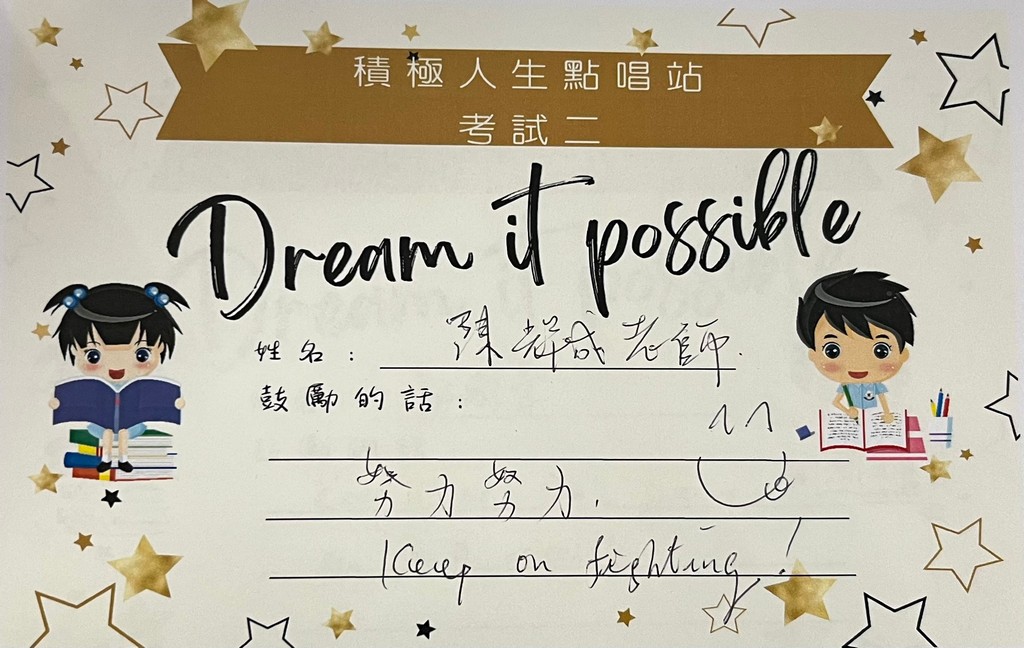 積極人生點唱站
考試二
Dream it possible
姓名： 陳群成老師.
鼓勵的話：
努力努力.
Keep on fighting!